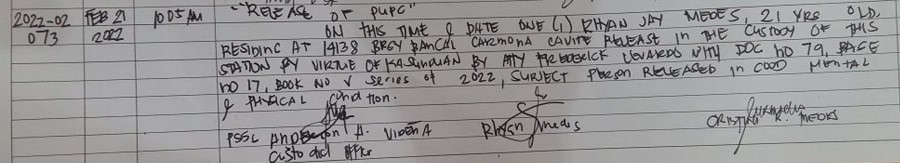 2022-02 FEB 21 10:05 AM "RELEASE OF PUPC"
073 2022 ON THIS TIME & DATE ONE (1) RHYAN JAY MEDES, 21 YRS OLD,
RESIDING AT 14138 BRGY BANCAL CARMONA CAVITE RELEASE IN THE CUSTODY OF THIS
STATION BY VIRTUE OF KASUNDUAN BY ATTY FREDERICK WITH DOC NO 79, PAGE
NO 17, BOOK NO V series of 2022, SUBJECT Person RELEASED in GOOD MENTAL
& PHYSICAL condition.
PSSg Anderson A. Rhyan medes CRISTINA R. MEDES
Custodial officer